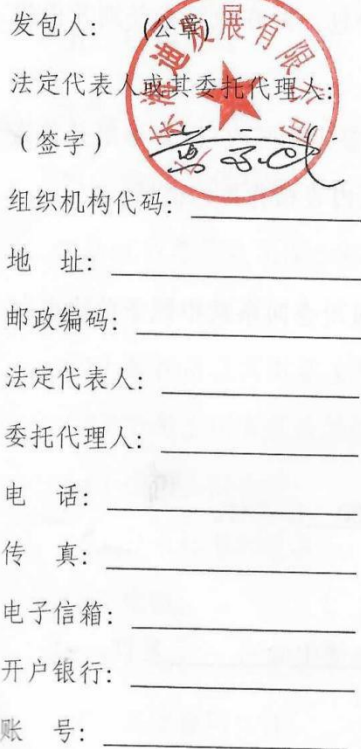 发包人: (公章)
法定代表人或其委托代理人:
(签字)
组织机构代码:
地 址:
邮政编码:
法定代表人:
委托代理人:
电 话:
传 真:
电子信箱:
开户银行:
账 号:
发展有限公司